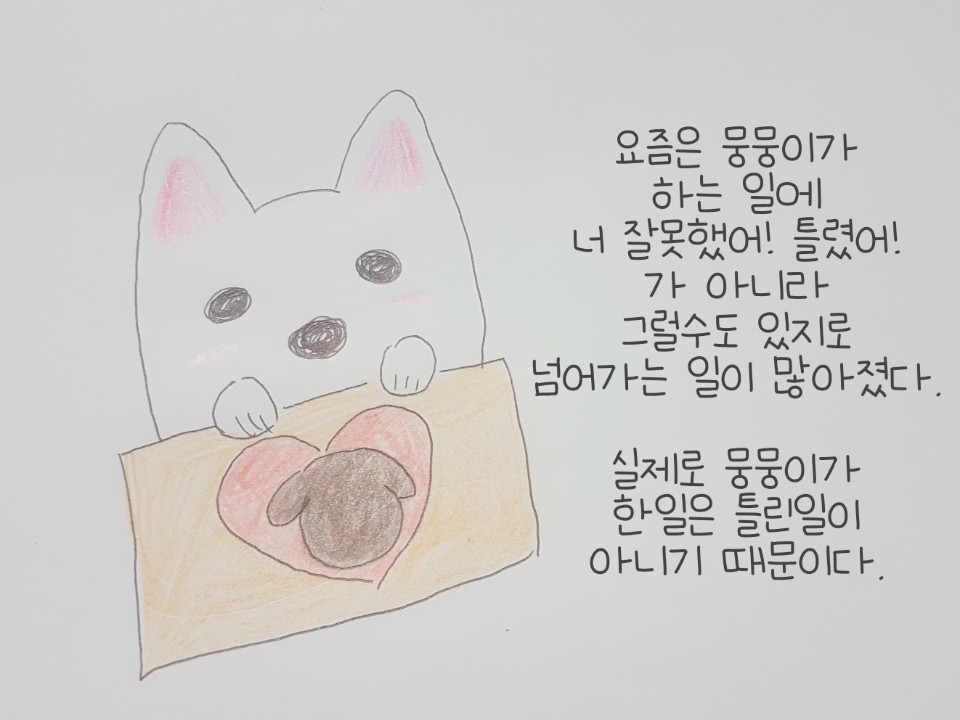 요즘은 뭉뭉이가
하는 일에
너 잘못했어! 틀렸어!
가 아니라
그럴수도 있지로
넘어가는 일이 많아졌다.
실제로 뭉뭉이가
한일은 틀린일이
아니기 때문이다.